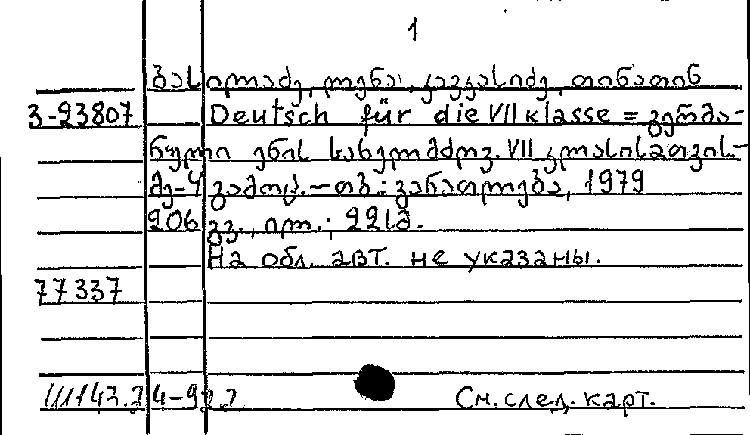 1
ბასილაძე, ლენა, კავკასიძე, თინათინ
3-93807 Deutsch für die VII klasse = გერმა-
ნული ენის სახელმძღვ. VII კლასისათვის-
მე-4 გამოც.-თბ.: განათლება, 1979
206 გვ., ილ.; 22სმ.
На обл. авт. не указаны.
77337
4-9
См. след. карт.